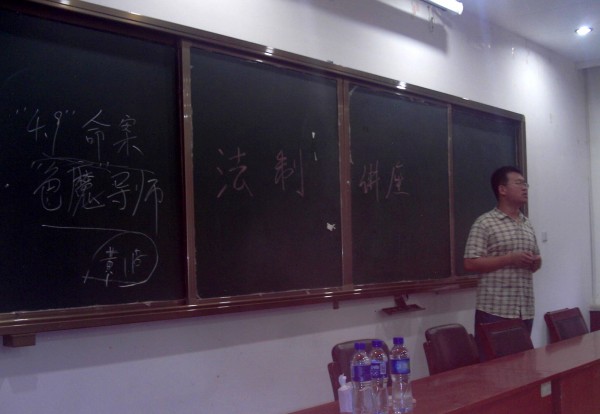 "4.9"命案
"色魔"导师
法制讲座